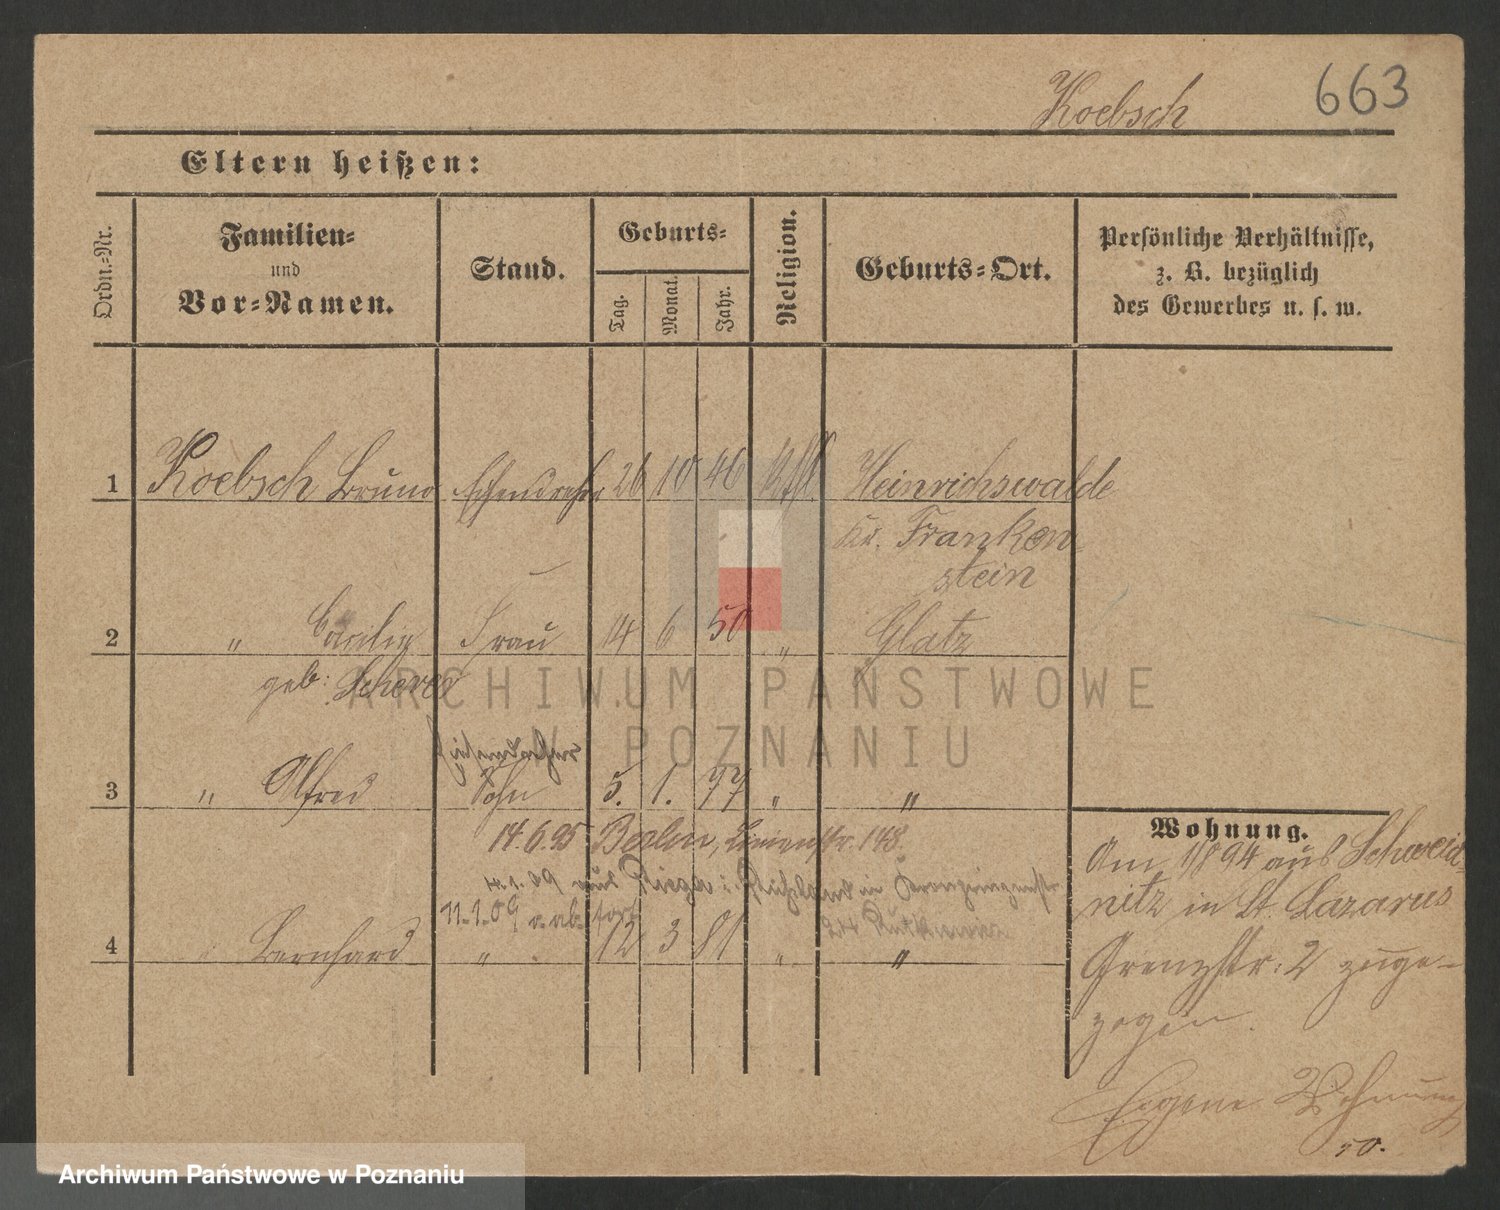 663
Koebsch
Eltern heißen:
Ordn.-Nr.
Familien-
und
Vor-Namen.
Stand.
Geburts-
Tag.
Monat.
Jahr.
Religion.
Geburts-Ort.
Persönliche Verhältnisse,
z. B. bezüglich
des Gewerbes u. s. w.
1 Koebsch Bruno 26 10 46 Heinrichswalde
Kr. Franken
stein
2 " Cäcilie Frau 14 6 50 " Glatz
geb: Scherer
ARCHIWUM PAŃSTWOWE
W POZNANIU
3 " Alfred Sohn 5. 1. 77 " "
14.6.95 Berlin, Linienstr. 148.
11.1.09 v. ab.
4 " Bernhard " 12 3 81 " "
Wohnung.
Am 1/8 94 aus Schweid-
nitz in St. Lazarus
Grenzstr: 2 zuge-
zogen.
Eigene Wohnung
50.
Archiwum Państwowe w Poznaniu